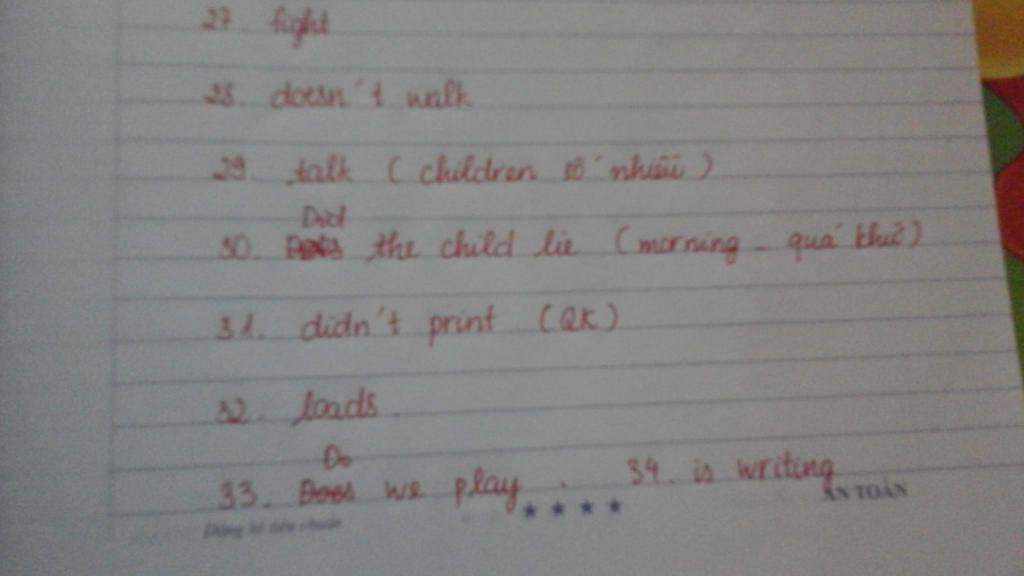 27. fight
28. doesn't walk
29. talk (children số nhiều)
Did
30. Does the child lie (morning - quá khứ)
31. didn't print (QK)
32. loads
Do
33. Does we play. 34. is writing
Dòng kẻ tiêu chuẩn ★ ★ ★ ★ AN TOÀN